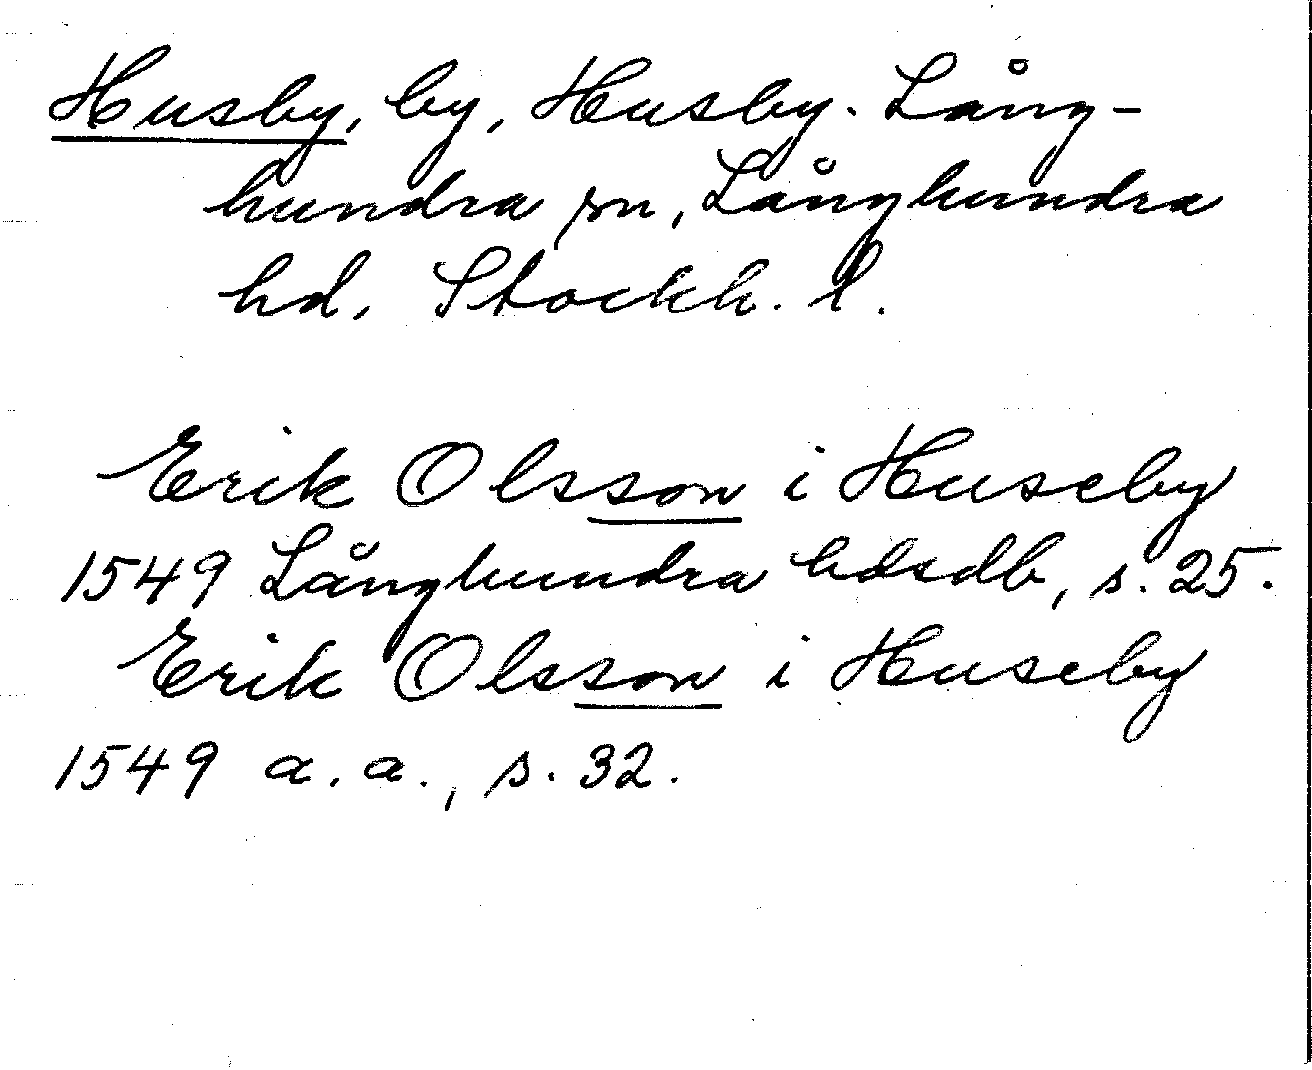 Husby, by, Husby. Lång-
hundra sn, Långhundra
hd, Stockh. l.
Erik Olsson i Huseby
1549 Långhundra hdsdb, s. 25.
Erik Olsson i Huseby
1549 a. a., s. 32.